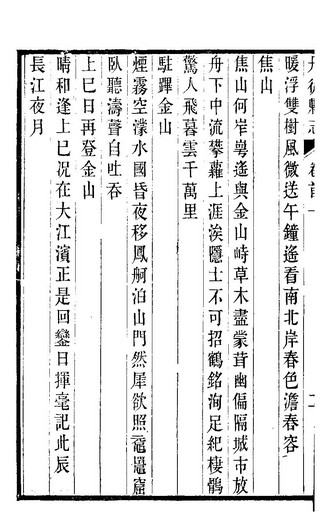 丹徒縣志 卷首一
暖浮雙樹風微送午鐘遙看南北岸春色澹春容
焦山
焦山何崒嵂遙與金山峙草木盡蒙茸幽偏隔城市放
舟下中流攀蘿上涯涘隱士不可招鶴銘洵足紀棲鶻
驚人飛暮雲千萬里
駐蹕金山
煙霧空濛水國昏夜移鳳舸泊山門然犀欲照黿鼉窟
臥聽濤聲自吐吞
上巳日再登金山
晴和逢上巳況在大江濱正是回鑾日揮毫記此辰
長江夜月